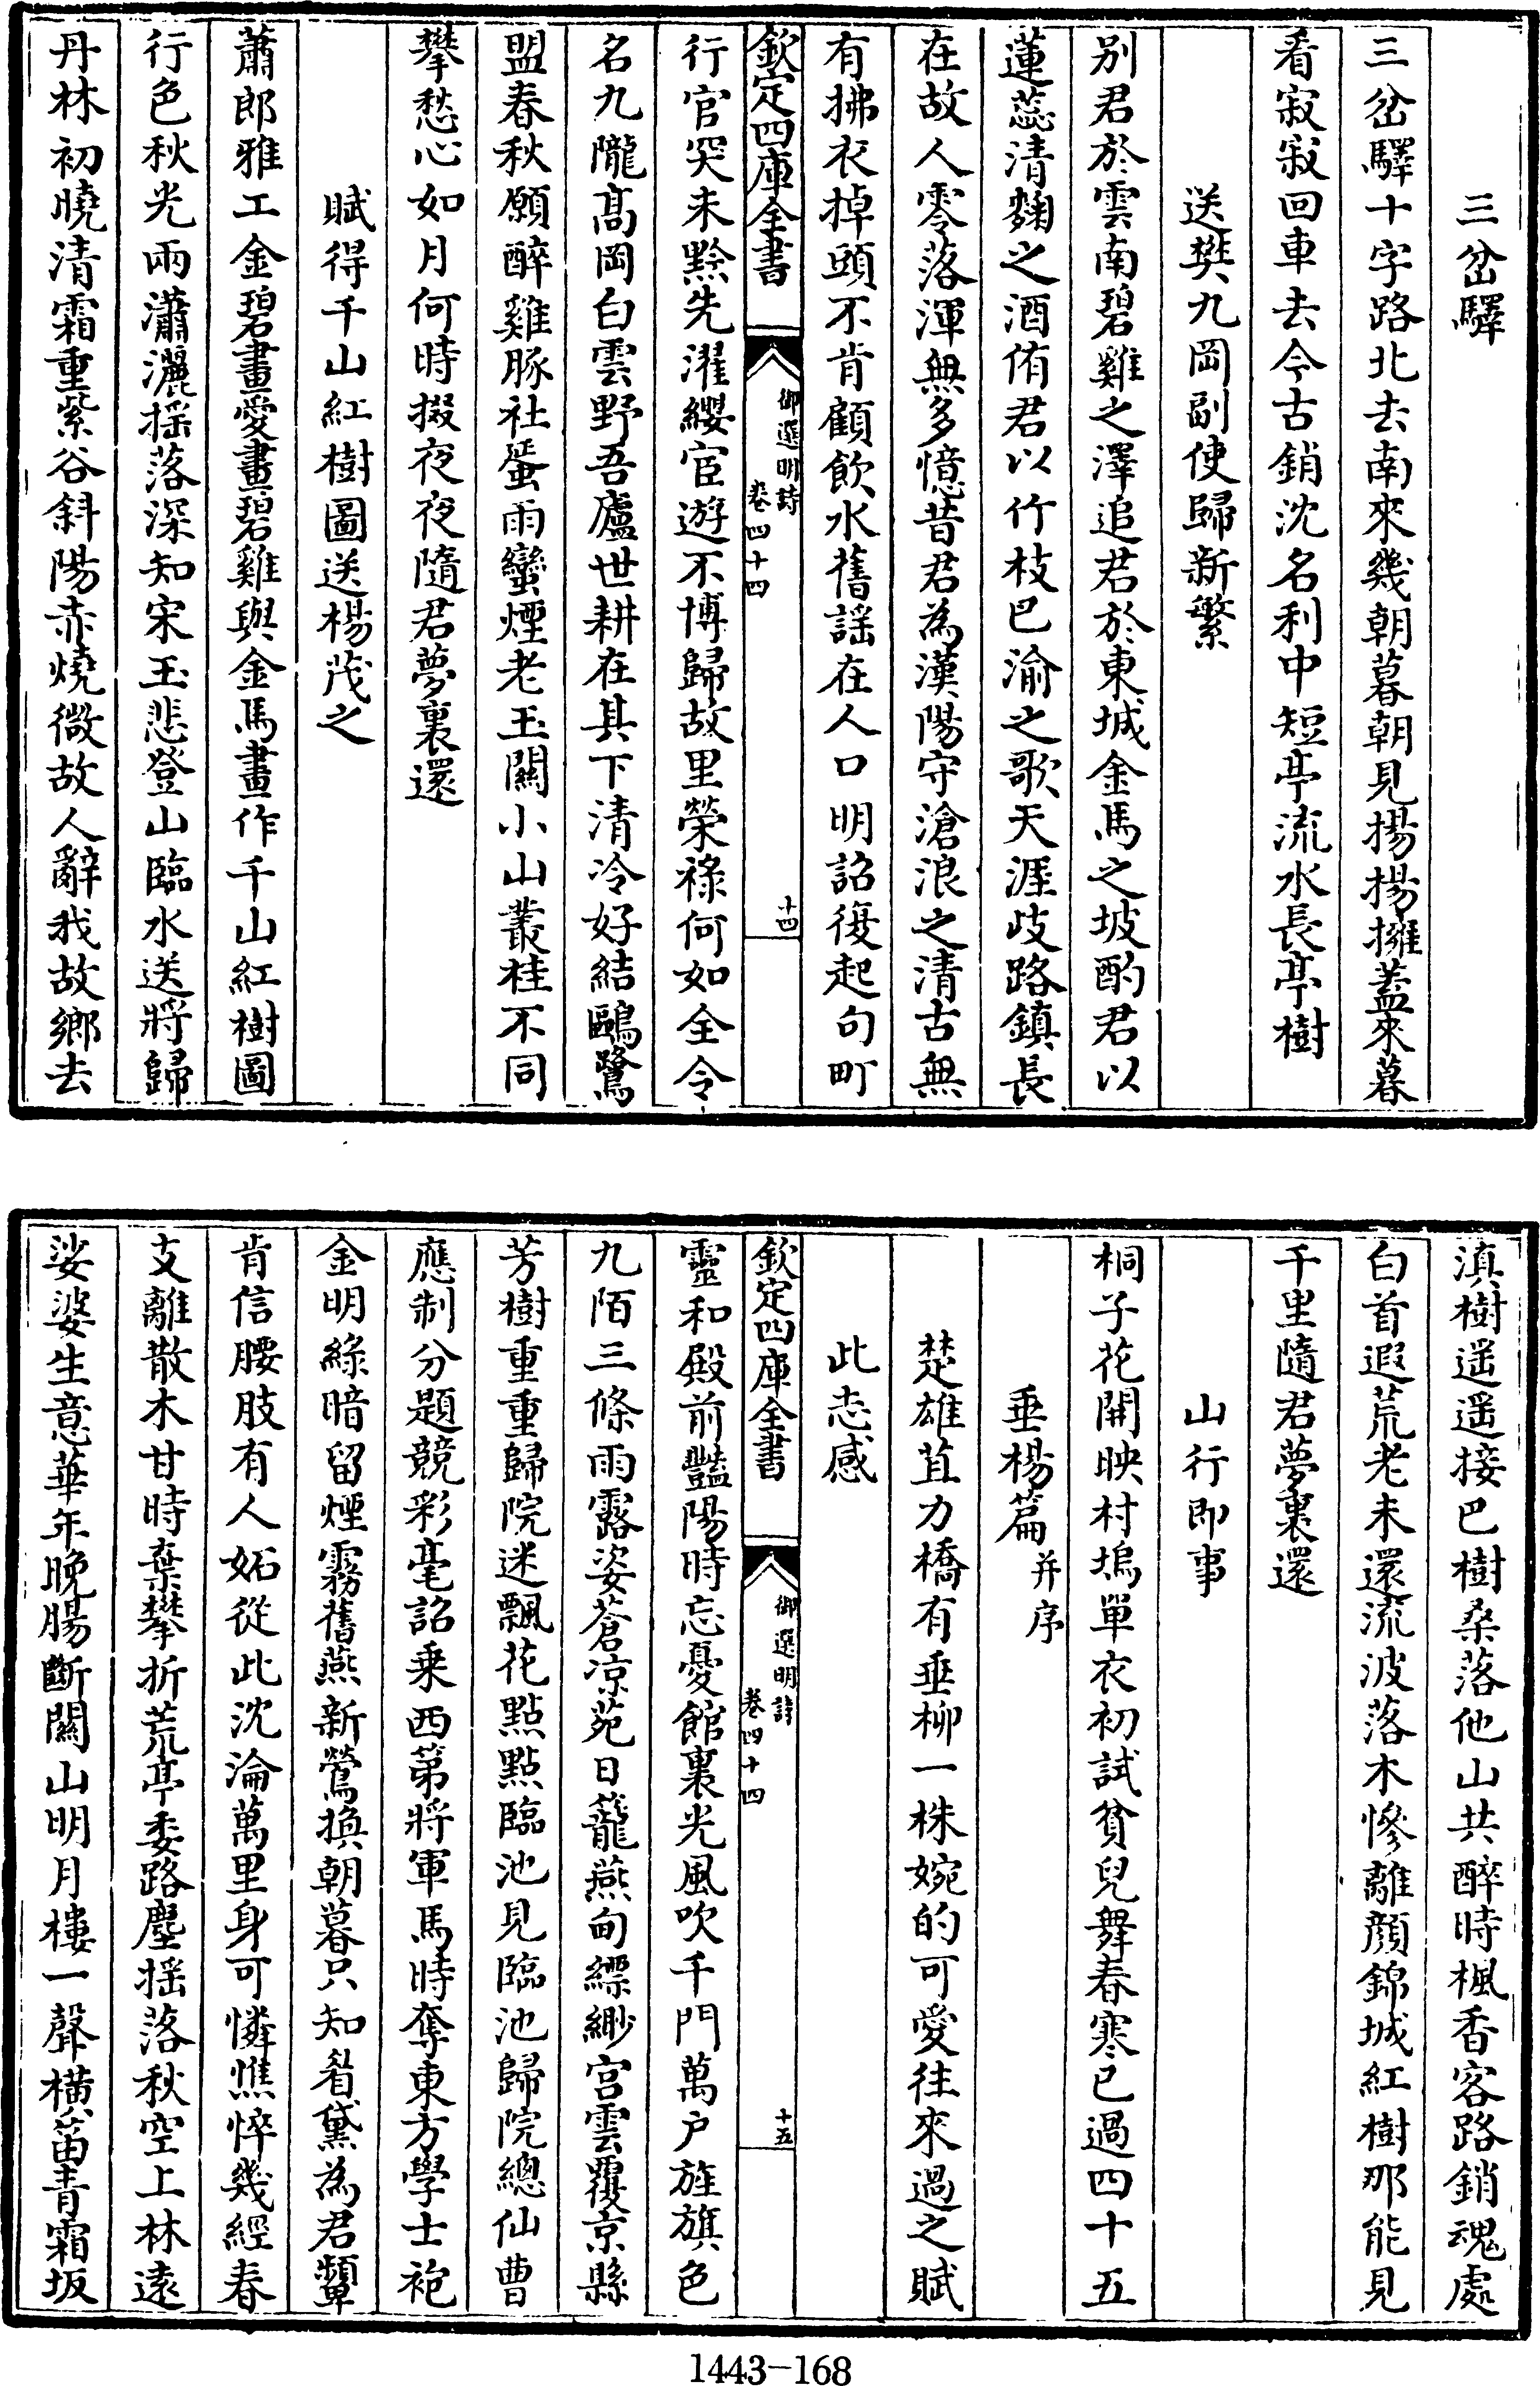 三岔驛
三岔驛十字路北去南來幾朝暮朝見揚揚擁蓋來暮
看寂寂回車去今古銷沈名利中短亭流水長亭樹
送樊九岡副使歸新繁
别君於雲南碧雞之澤追君於東城金馬之坡酌君以
蓮蕊清麴之酒侑君以竹枝巴渝之歌天涯歧路鎮長
在故人零落渾無多憶昔君為漢陽守滄浪之清古無
有拂衣掉頭不肯顧飲水舊謡在人口明詔復起句町
欽定四庫全書
御選明詩
卷四十四
十四
行官突未黔先濯纓宦遊不博歸故里榮祿何如全令
名九隴髙岡白雲野吾廬世耕在其下清冷好結鷗鷺
盟春秋願醉雞豚社蜑雨蠻煙老玉關小山叢桂不同
攀愁心如月何時掇夜夜隨君夢裏還
賦得千山紅樹圖送楊茂之
蕭郎雅工金碧畫愛畫碧雞與金馬畫作千山紅樹圖
行色秋光兩瀟灑揺落深知宋玉悲登山臨水送將歸
丹林初曉清霜重紫谷斜陽赤燒微故人辭我故鄉去
滇樹遥遥接巴樹桑落他山共醉時楓香客路銷魂處
白首遐荒老未還流波落木慘離顔錦城紅樹那能見
千里隨君夢裏還
山行即事
桐子花開映村塢單衣初試貧兒舞春寒已過四十五
垂楊篇并序
楚雄苴力橋有垂柳一株婉的可愛往來過之賦
此志感
欽定四庫全書
御選明詩
卷四十四
十五
靈和殿前豔陽時忘憂館裏光風吹千門萬户旌旗色
九陌三條雨露姿蒼凉苑日籠燕甸縹緲宫雲覆京縣
芳樹重重歸院迷飄花點點臨池見臨池歸院總仙曹
應制分題競彩毫詔乗西第將軍馬時奪東方學士袍
金明綠暗留煙霧舊燕新鶯換朝暮只知眉黛為君顰
肯信腰肢有人妬從此沈淪萬里身可憐憔悴幾經春
支離散木甘時棄攀折荒亭委路塵揺落秋空上林遠
娑婆生意華年晚腸斷關山明月樓一聲横笛青霜坂
1443-168